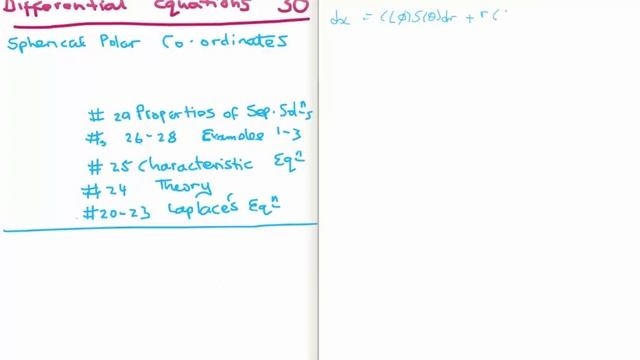 Differential Equations 30
Spherical Polar Co-ordinates
# 29 Properties of Sep. Solⁿs
#s 26-28 Examples 1-3
# 25 Characteristic Eqⁿ
# 24 Theory
#20-23 Laplace's Eqⁿ
dx = C(ϕ)S(θ)dr + r C